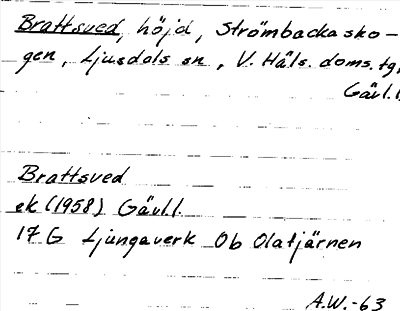 Brattsved, höjd, Strömbackasko-
gen, Ljusdals sn, V. Häls. doms. tg,
Gävl.l.
Brattsved
ek (1958) Gävl.l.
17 G Ljungaverk Ob Olatjärnen
A.W.-63